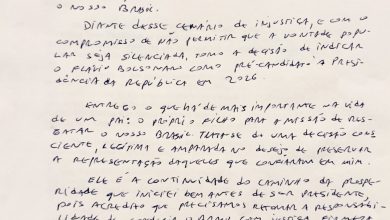 O NOSSO BRASIL.
DIANTE DESSE CENÁRIO DE INJUSTIÇA, E COM O
COMPROMISSO DE NÃO PERMITIR QUE A VONTADE POPU-
LAR SEJA SILENCIADA, TOMO A DECISÃO DE INDICAR
O FLÁVIO BOLSONARO COMO PRÉ-CANDIDATO À PRESI-
DÊNCIA DA REPÚBLICA EM 2026.
ENTREGO O QUE HÁ DE MAIS IMPORTANTE NA VIDA
DE UM PAI: O PRÓPRIO FILHO PARA A MISSÃO DE RES-
GATAR O NOSSO BRASIL. TRATA-SE DE UMA DECISÃO CONS-
CIENTE, LEGÍTIMA E AMPARADA NO DESEJO DE PRESERVAR
A REPRESENTAÇÃO DAQUELES QUE CONFIARAM EM MIM.
ELE É A CONTINUIDADE DO CAMINHO DA PROSPE-
RIDADE QUE INICIEI BEM ANTES DE SER PRESIDENTE,
POIS ACREDITO QUE PRECISAMOS RETOMAR A RESPONSABI-
LIDADE DE CONDUZIR O BRASIL COM JUSTIÇA, FIRMEZA